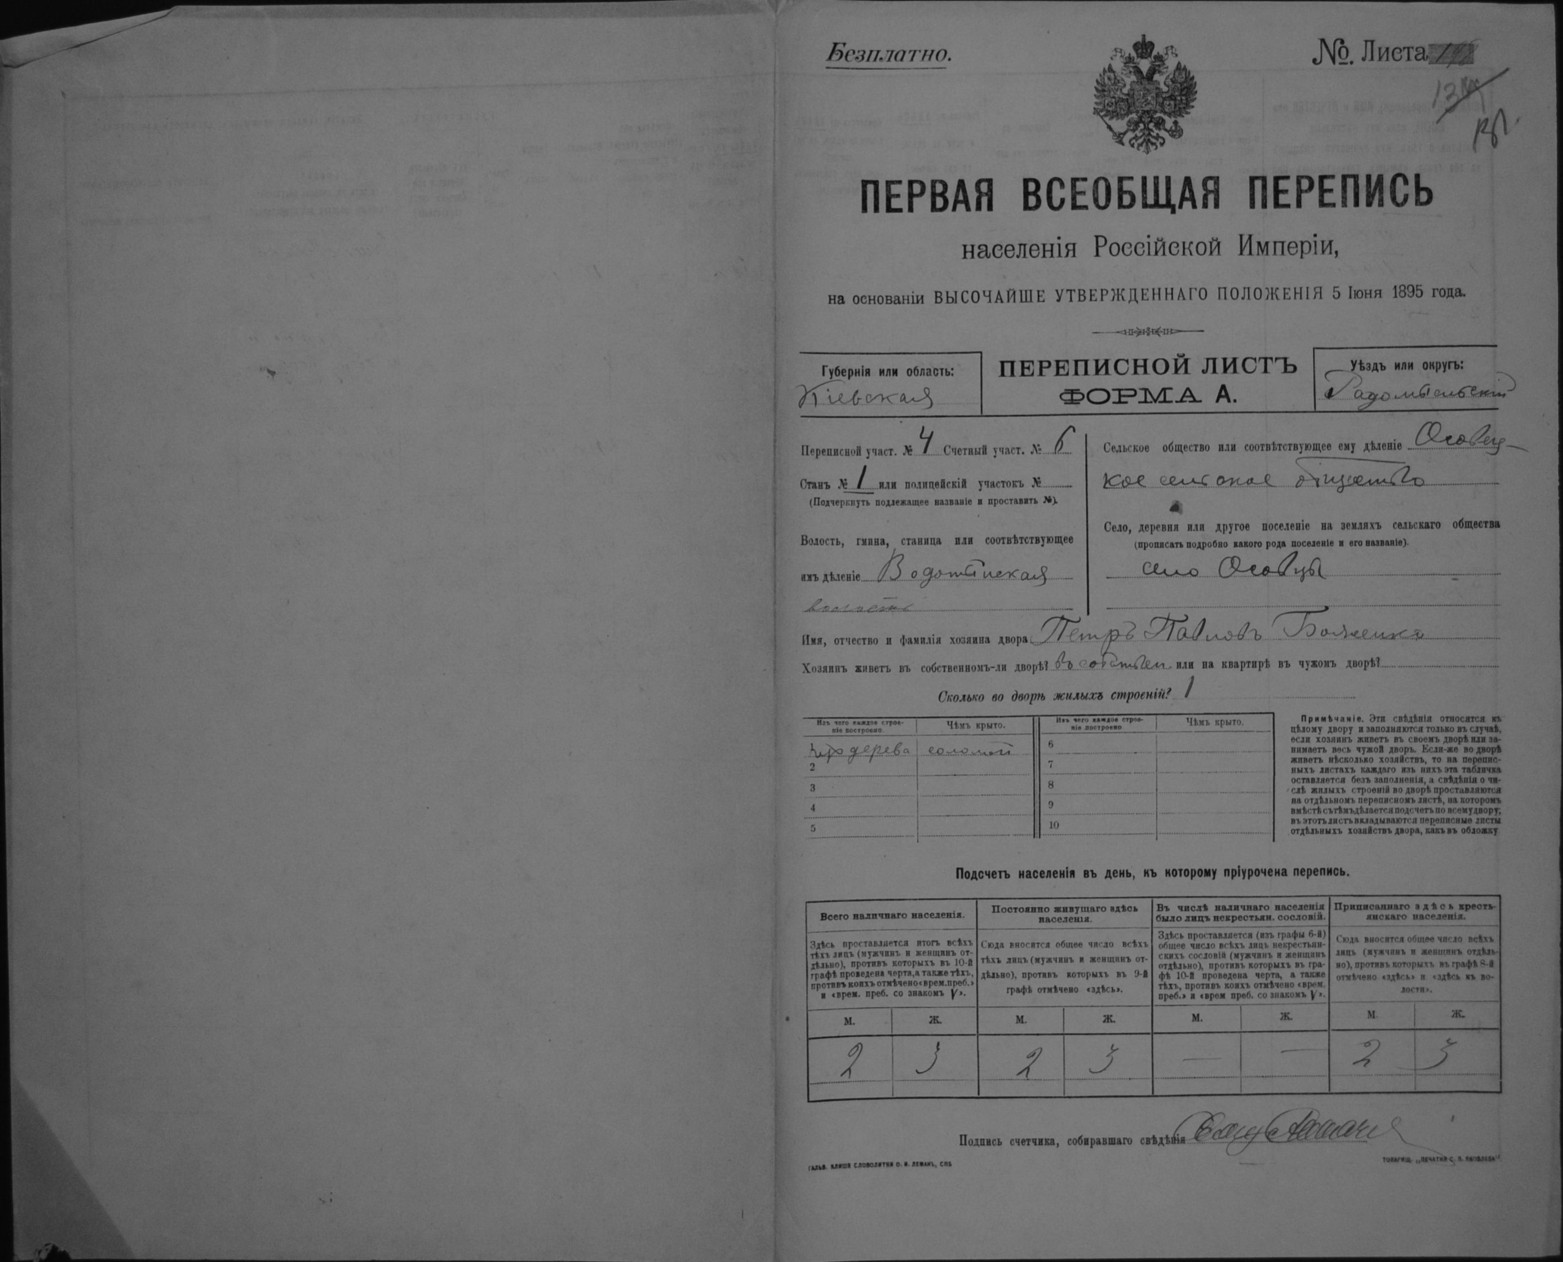 Безплатно.
№. Листа
ПЕРВАЯ ВСЕОБЩАЯ ПЕРЕПИСЬ
населенія Россійской Имперіи,
на основаніи ВЫСОЧАЙШЕ УТВЕРЖДЕННАГО ПОЛОЖЕНІЯ 5 Іюня 1895 года.
Губернія или область:
Кіевская
ПЕРЕПИСНОЙ ЛИСТЪ
ФОРМА А.
Уѣздъ или округъ:
Радомысльскій
Переписной участ. № 4 Счетный участ. № 6
Станъ № 1 или полицейскій участокъ №
(Подчеркнуть подлежащее названіе и проставить №).
Волость, гмина, станица или соотвѣтствующее
имъ дѣленіе Водотыйская
волость
Сельское общество или соотвѣтствующее ему дѣленіе Осовец-
кое сельское общество
Село, деревня или другое поселеніе на земляхъ сельскаго общества
(прописать подробно какого рода поселеніе и его названіе).
село Осовцы
Имя, отчество и фамилія хозяина двора Петръ Павловъ Боженко
Хозяинъ живетъ въ собственномъ-ли дворѣ? въ собствен или на квартирѣ въ чужомъ дворѣ?
Сколько во дворѣ жилыхъ строеній? 1
Изъ чего каждое строе-
ніе построено
Чѣмъ крыто.
Изъ чего каждое строе-
ніе построено
Чѣмъ крыто.
дерева соломой
2
3
4
5
6
7
8
9
10
Примѣчаніе. Эти свѣдѣнія относятся къ
цѣлому двору и заполняются только въ случаѣ,
если хозяинъ живетъ въ своемъ дворѣ или за-
нимаетъ весь чужой дворъ. Если-же во дворѣ
живетъ нѣсколько хозяйствъ, то на перепис-
ныхъ листахъ каждаго изъ нихъ эта табличка
оставляется безъ заполненія, а свѣдѣнія о чи-
слѣ жилыхъ строеній во дворѣ проставляются
на отдѣльномъ переписномъ листѣ, на которомъ
вмѣстѣ съ тѣмъ дѣлается подсчетъ по всему двору;
въ этотъ листъ вкладываются переписные листы
отдѣльныхъ хозяйствъ двора, какъ въ обложку
Подсчетъ населенія въ день, къ которому пріурочена перепись.
Всего наличнаго населенія.
Здѣсь проставляется итогъ всѣхъ
тѣхъ лицъ (мужчинъ и женщинъ от-
дѣльно), противъ которыхъ въ 10-й
графѣ проведена черта, а также тѣхъ,
противъ коихъ отмѣчено «врем. преб.»
и «врем. преб. со знакомъ V».
Постоянно живущаго здѣсь
населенія.
Сюда вносится общее число всѣхъ
тѣхъ лицъ (мужчинъ и женщинъ от-
дѣльно), противъ которыхъ въ 9-й
графѣ отмѣчено «здѣсь».
Въ числѣ наличнаго населенія
было лицъ некрестьян. сословій.
Здѣсь проставляется (изъ графы 6-й)
общее число всѣхъ лицъ некрестьян-
скихъ сословій (мужчинъ и женщинъ
отдѣльно), противъ которыхъ въ гра-
фѣ 10-й проведена черта, а также
тѣхъ, противъ коихъ отмѣчено «врем.
преб.» и «врем преб. со знакомъ V».
Приписаннаго здѣсь кресть-
янскаго населенія.
Сюда вносится общее число всѣхъ
лицъ (мужчинъ и женщинъ отдѣль-
но), противъ которыхъ въ графѣ 8-й
отмѣчено «здѣсь» и «здѣсь въ во-
лости».
М. Ж. М. Ж. М. Ж. М. Ж.
2 3 2 3 — — 2 3
Подпись счетчика, собиравшаго свѣдѣнія
ГАЛЬВ. КЛИШЕ СЛОВОЛИТНИ О. И. ЛЕМАНЪ, СПБ
ТОВАРИЩ. „ПЕЧАТНЯ С. П. ЯКОВЛЕВА“